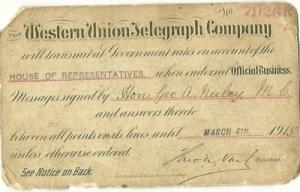 No 702KK
THE Western Union Telegraph Company
will transmit at Government rates on account of the
HOUSE OF REPRESENTATIVES, when endorsed Official Business.
Messages signed by Hon. Geo A. Neeley M C
and answers thereto
between all points on its lines until MARCH 4TH, 1915
unless otherwise ordered.
President.
See Notice on Back.